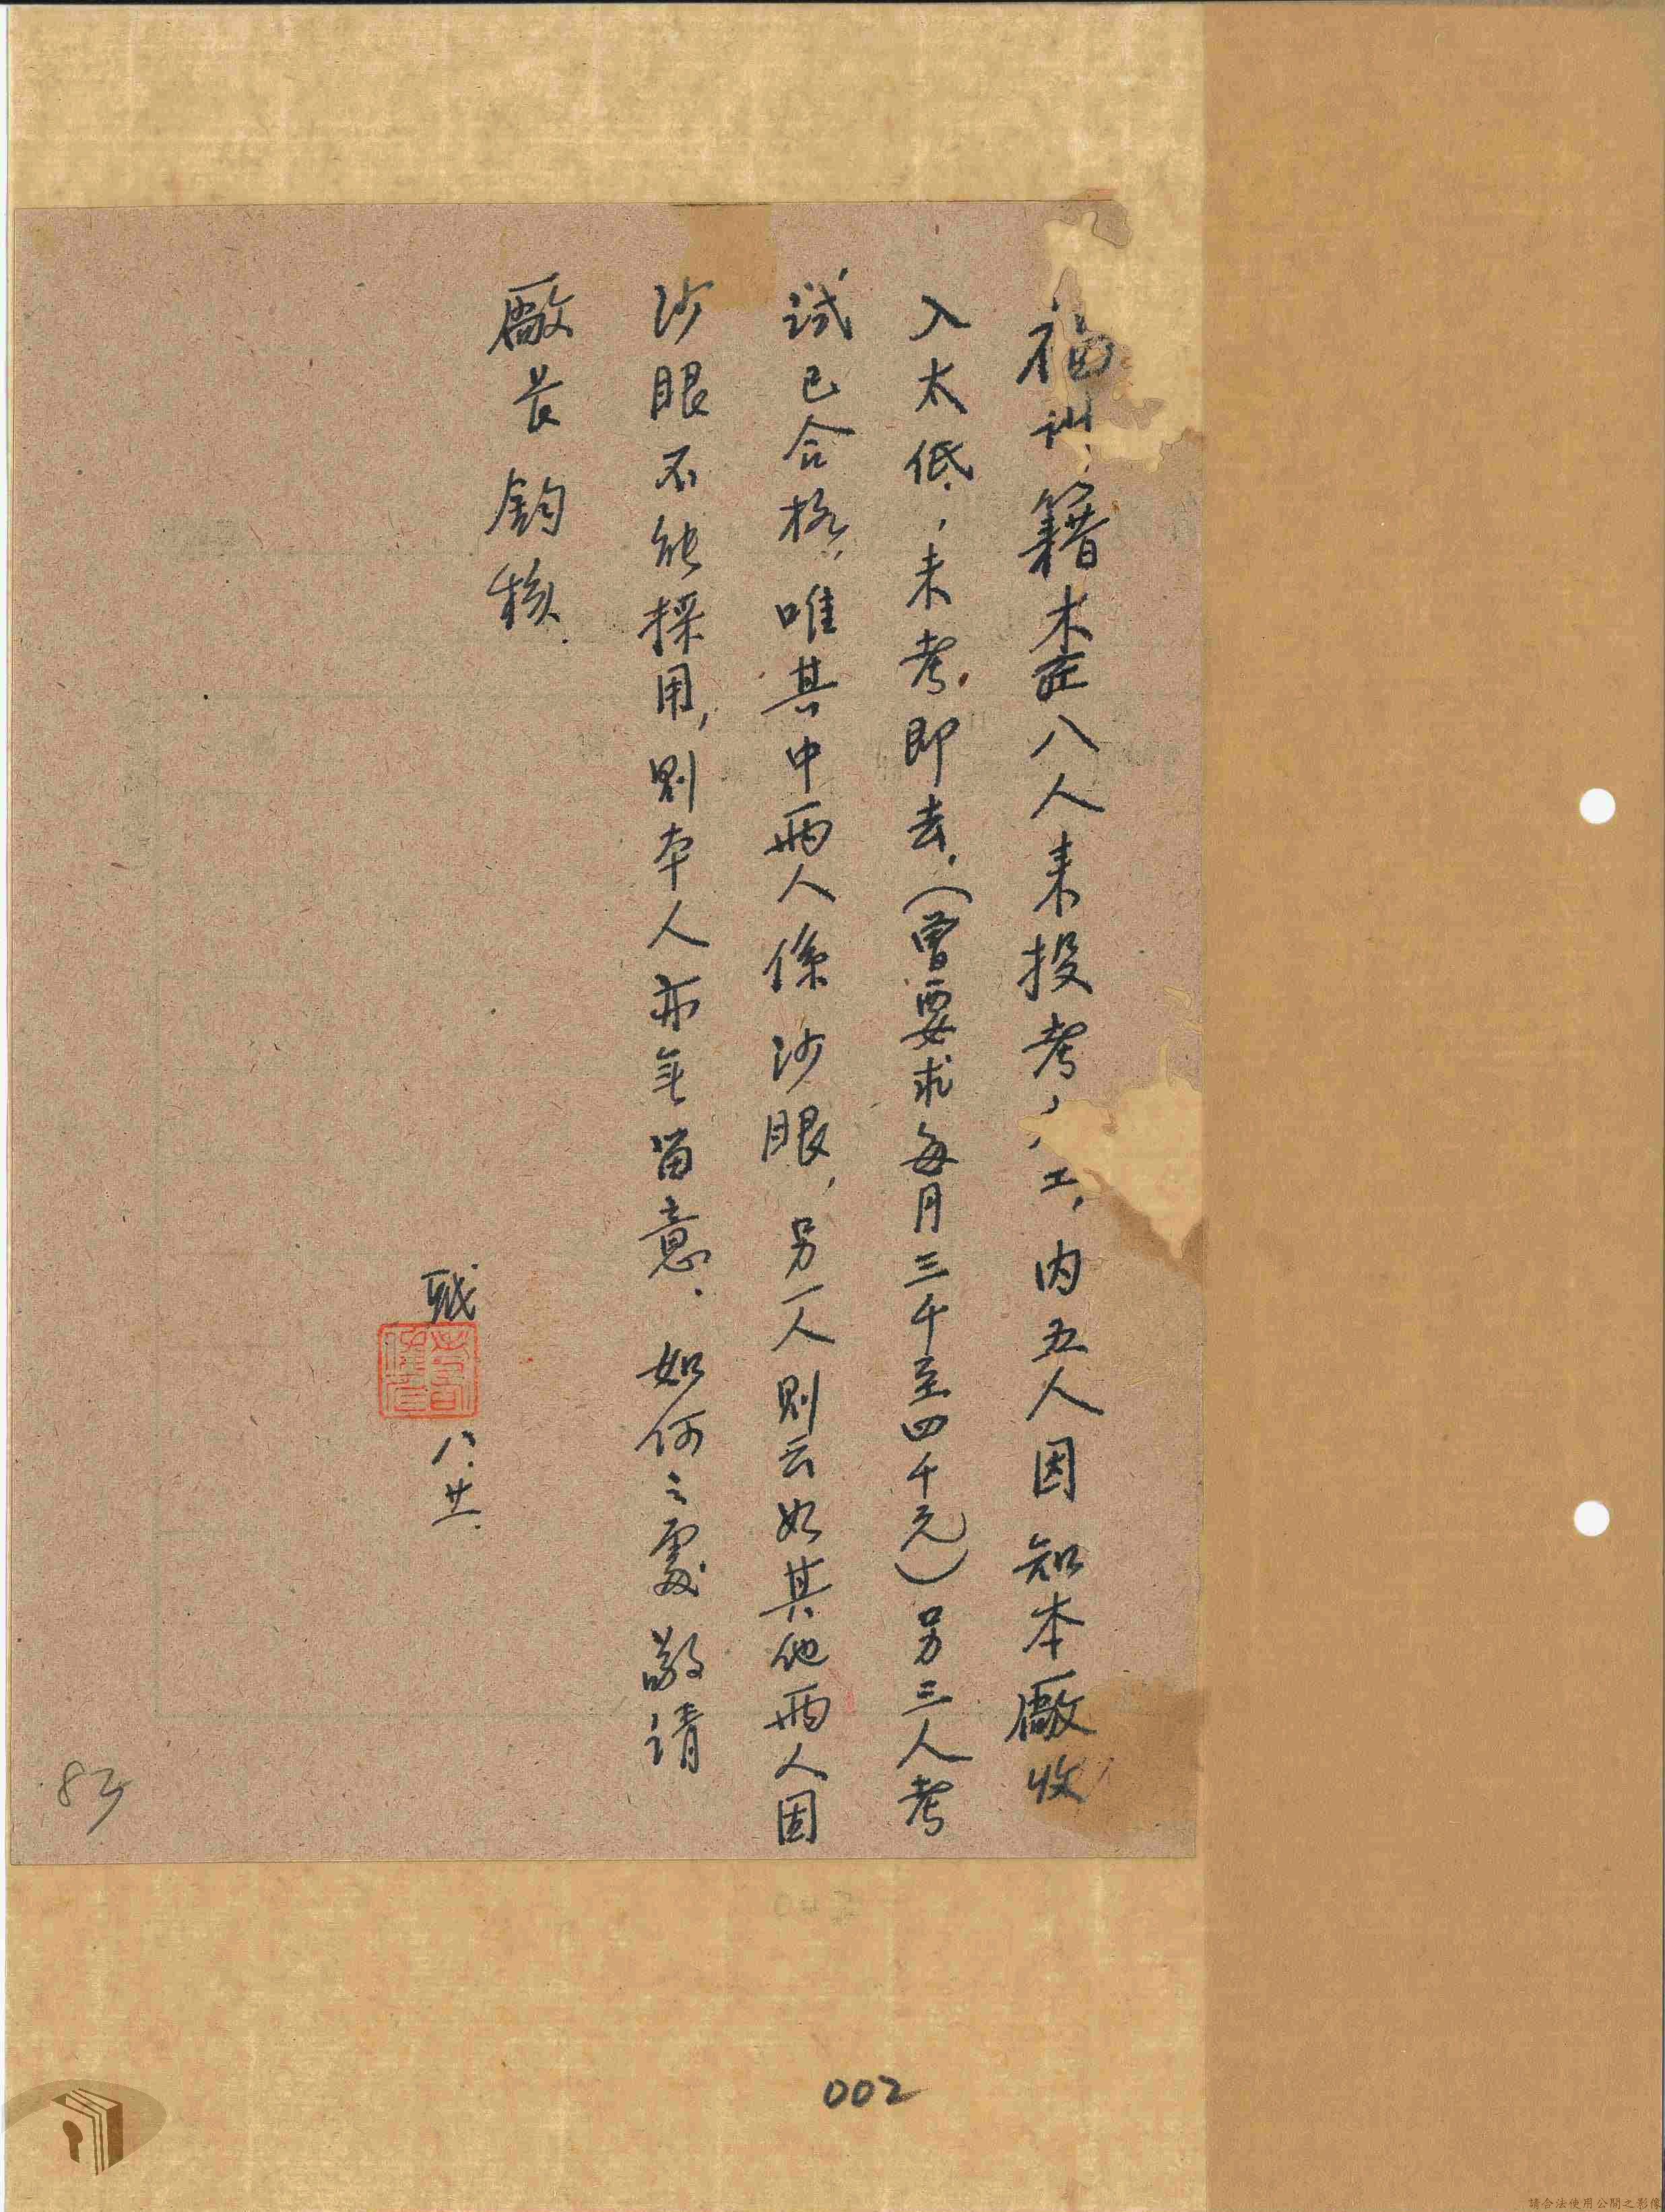 福州籍木匠八人来投考,工,内五人因知本廠收
入太低,未考即去,(曾要求每月三千至四千元)另三人考
試已合格,唯其中兩人係沙眼,另一人則云如其他兩人因
沙眼不能採用,則本人亦無留意.如何之處敬請
廠長鈞核.
職
八.廿.
83
002
請合法使用公開之影像